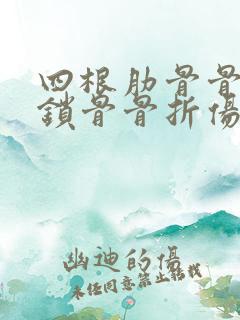 四根肋骨骨
鎖骨骨折傷
幽迪的傷
未经同意禁止转载